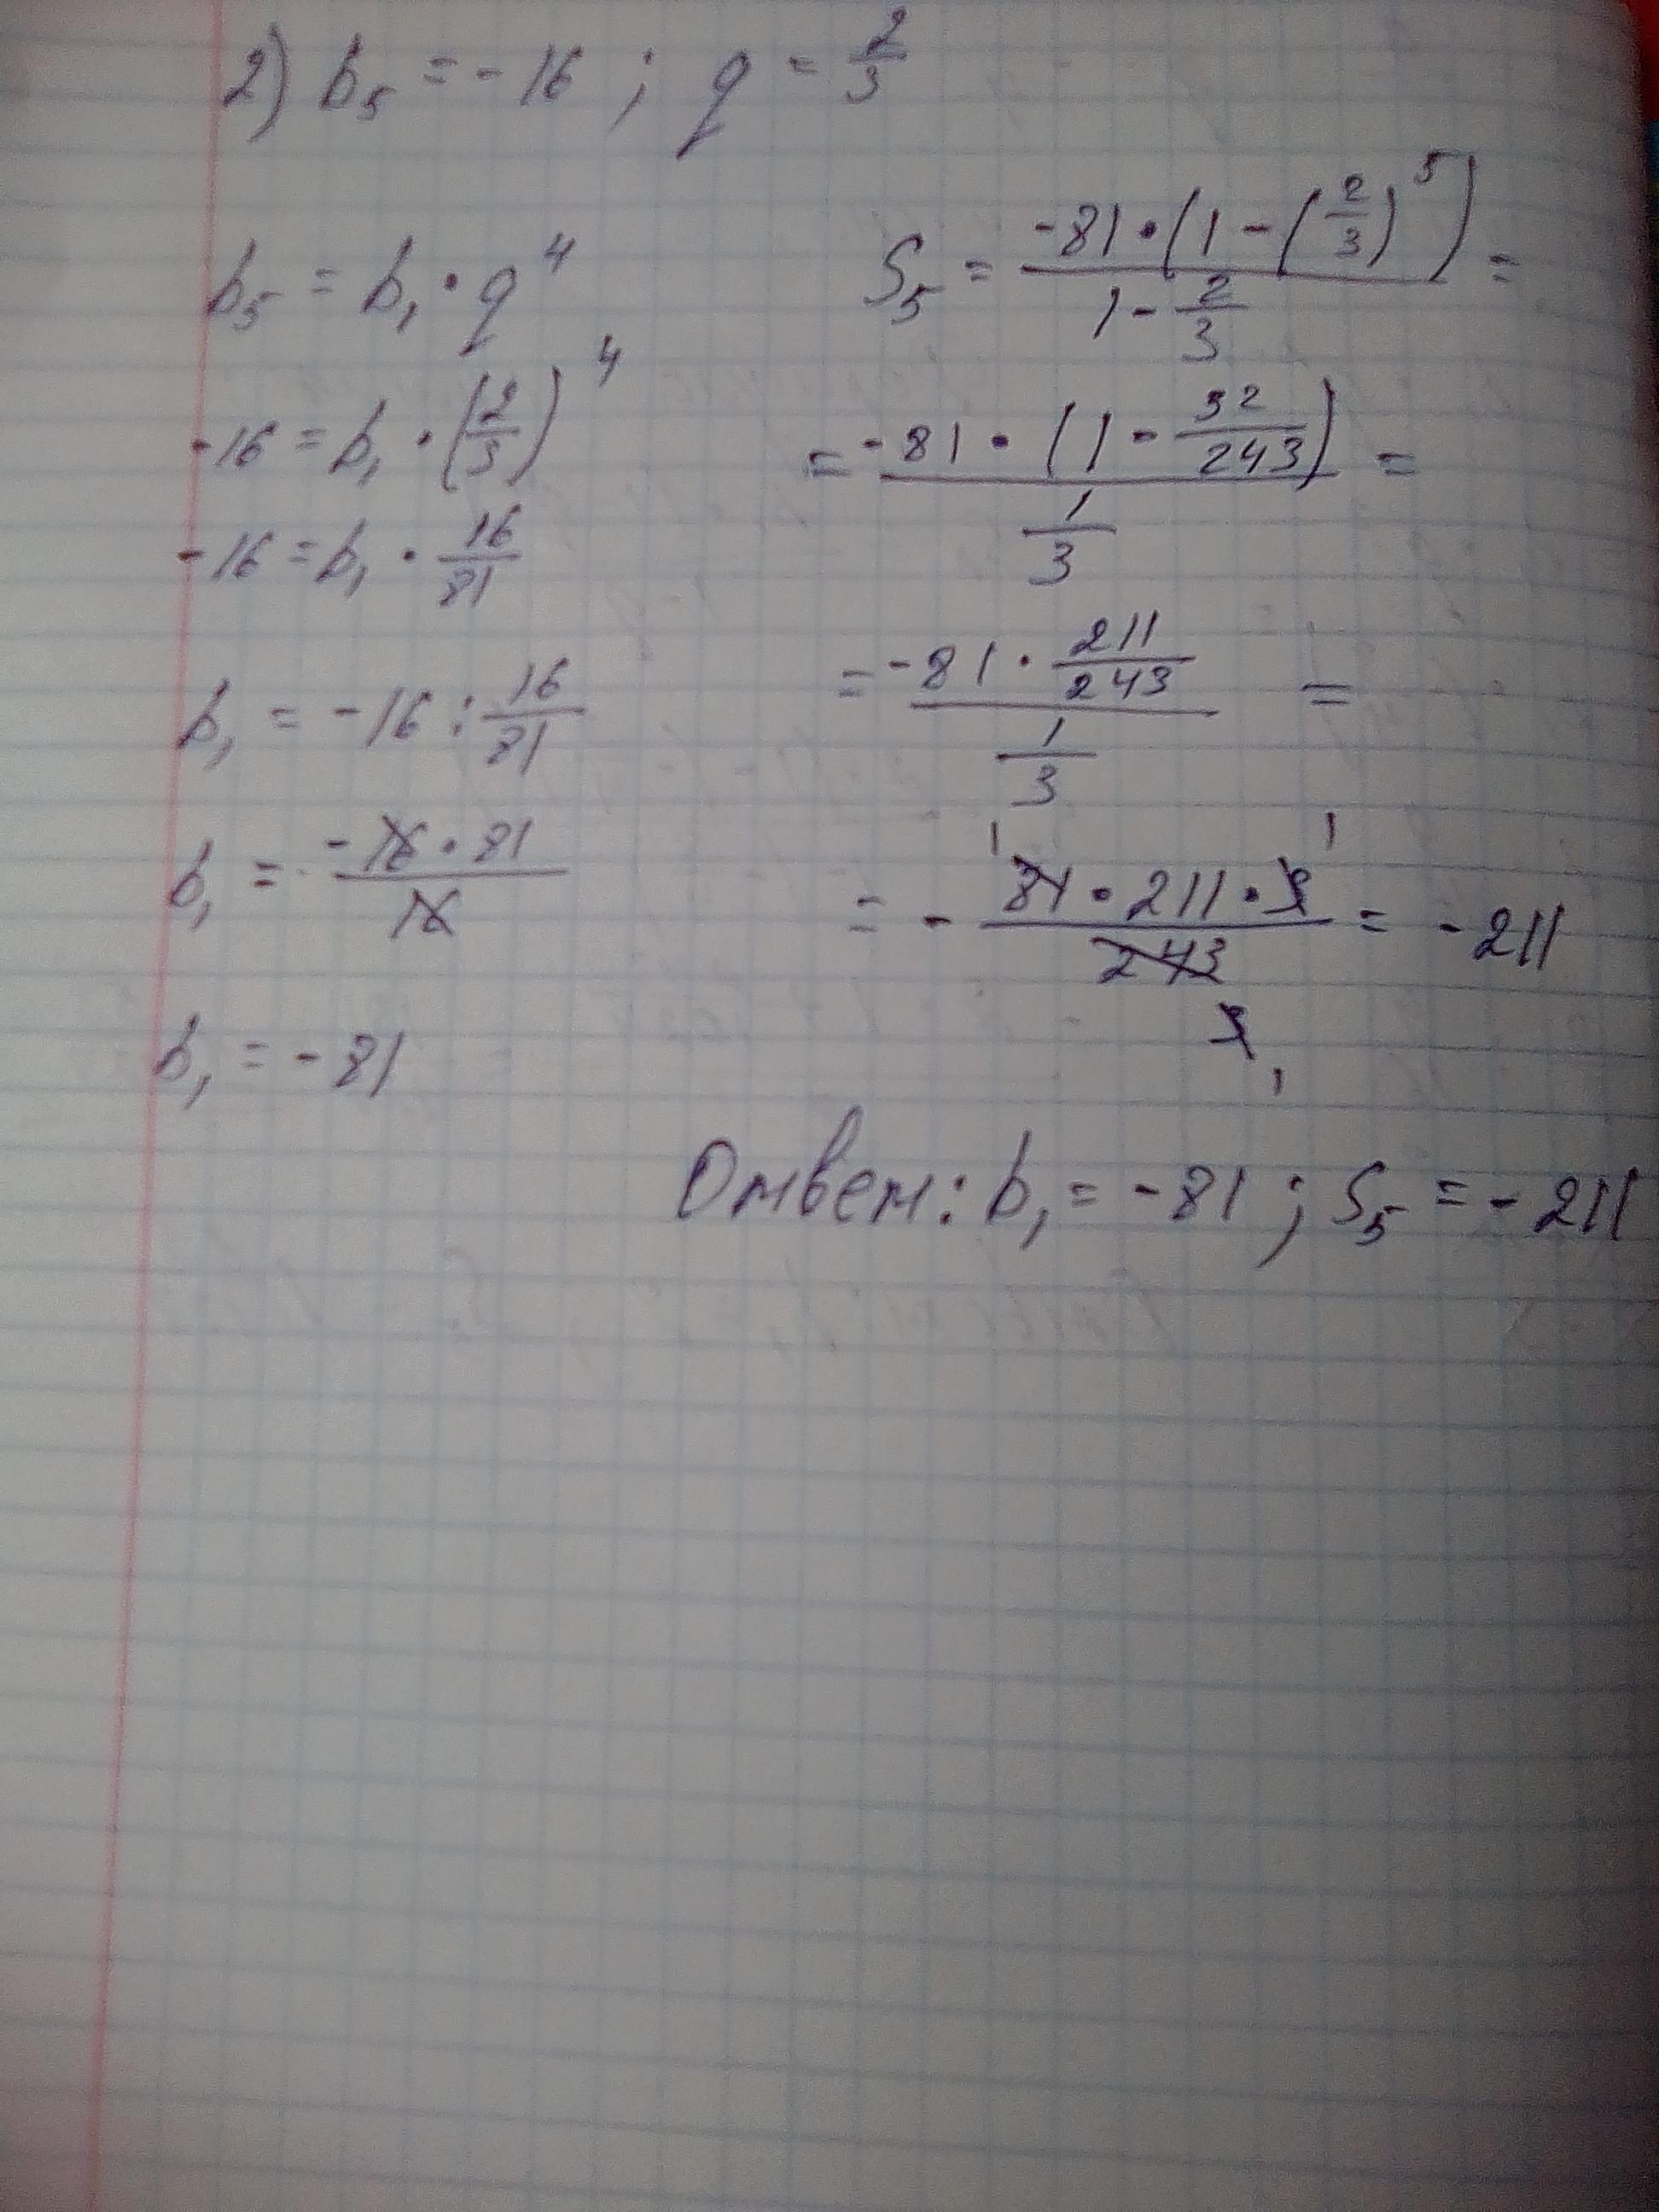 2) b₅ = - 16 ; q = 2/3
b₅ = b₁ · q⁴
-16 = b₁ · (2/3)⁴
-16 = b₁ · 16/81
b₁ = -16 : 16/81
b₁ = (-16 · 81)/16
b₁ = - 81
S₅ = (-81 · (1 - (2/3)⁵))/(1 - 2/3) =
= (-81 · (1 - 32/243))/(1/3) =
= (-81 · 211/243)/(1/3) =
= - (81 · 211 · 3)/243 = - 211
1 1
3
1
Ответ: b₁ = - 81 ; S₅ = - 211